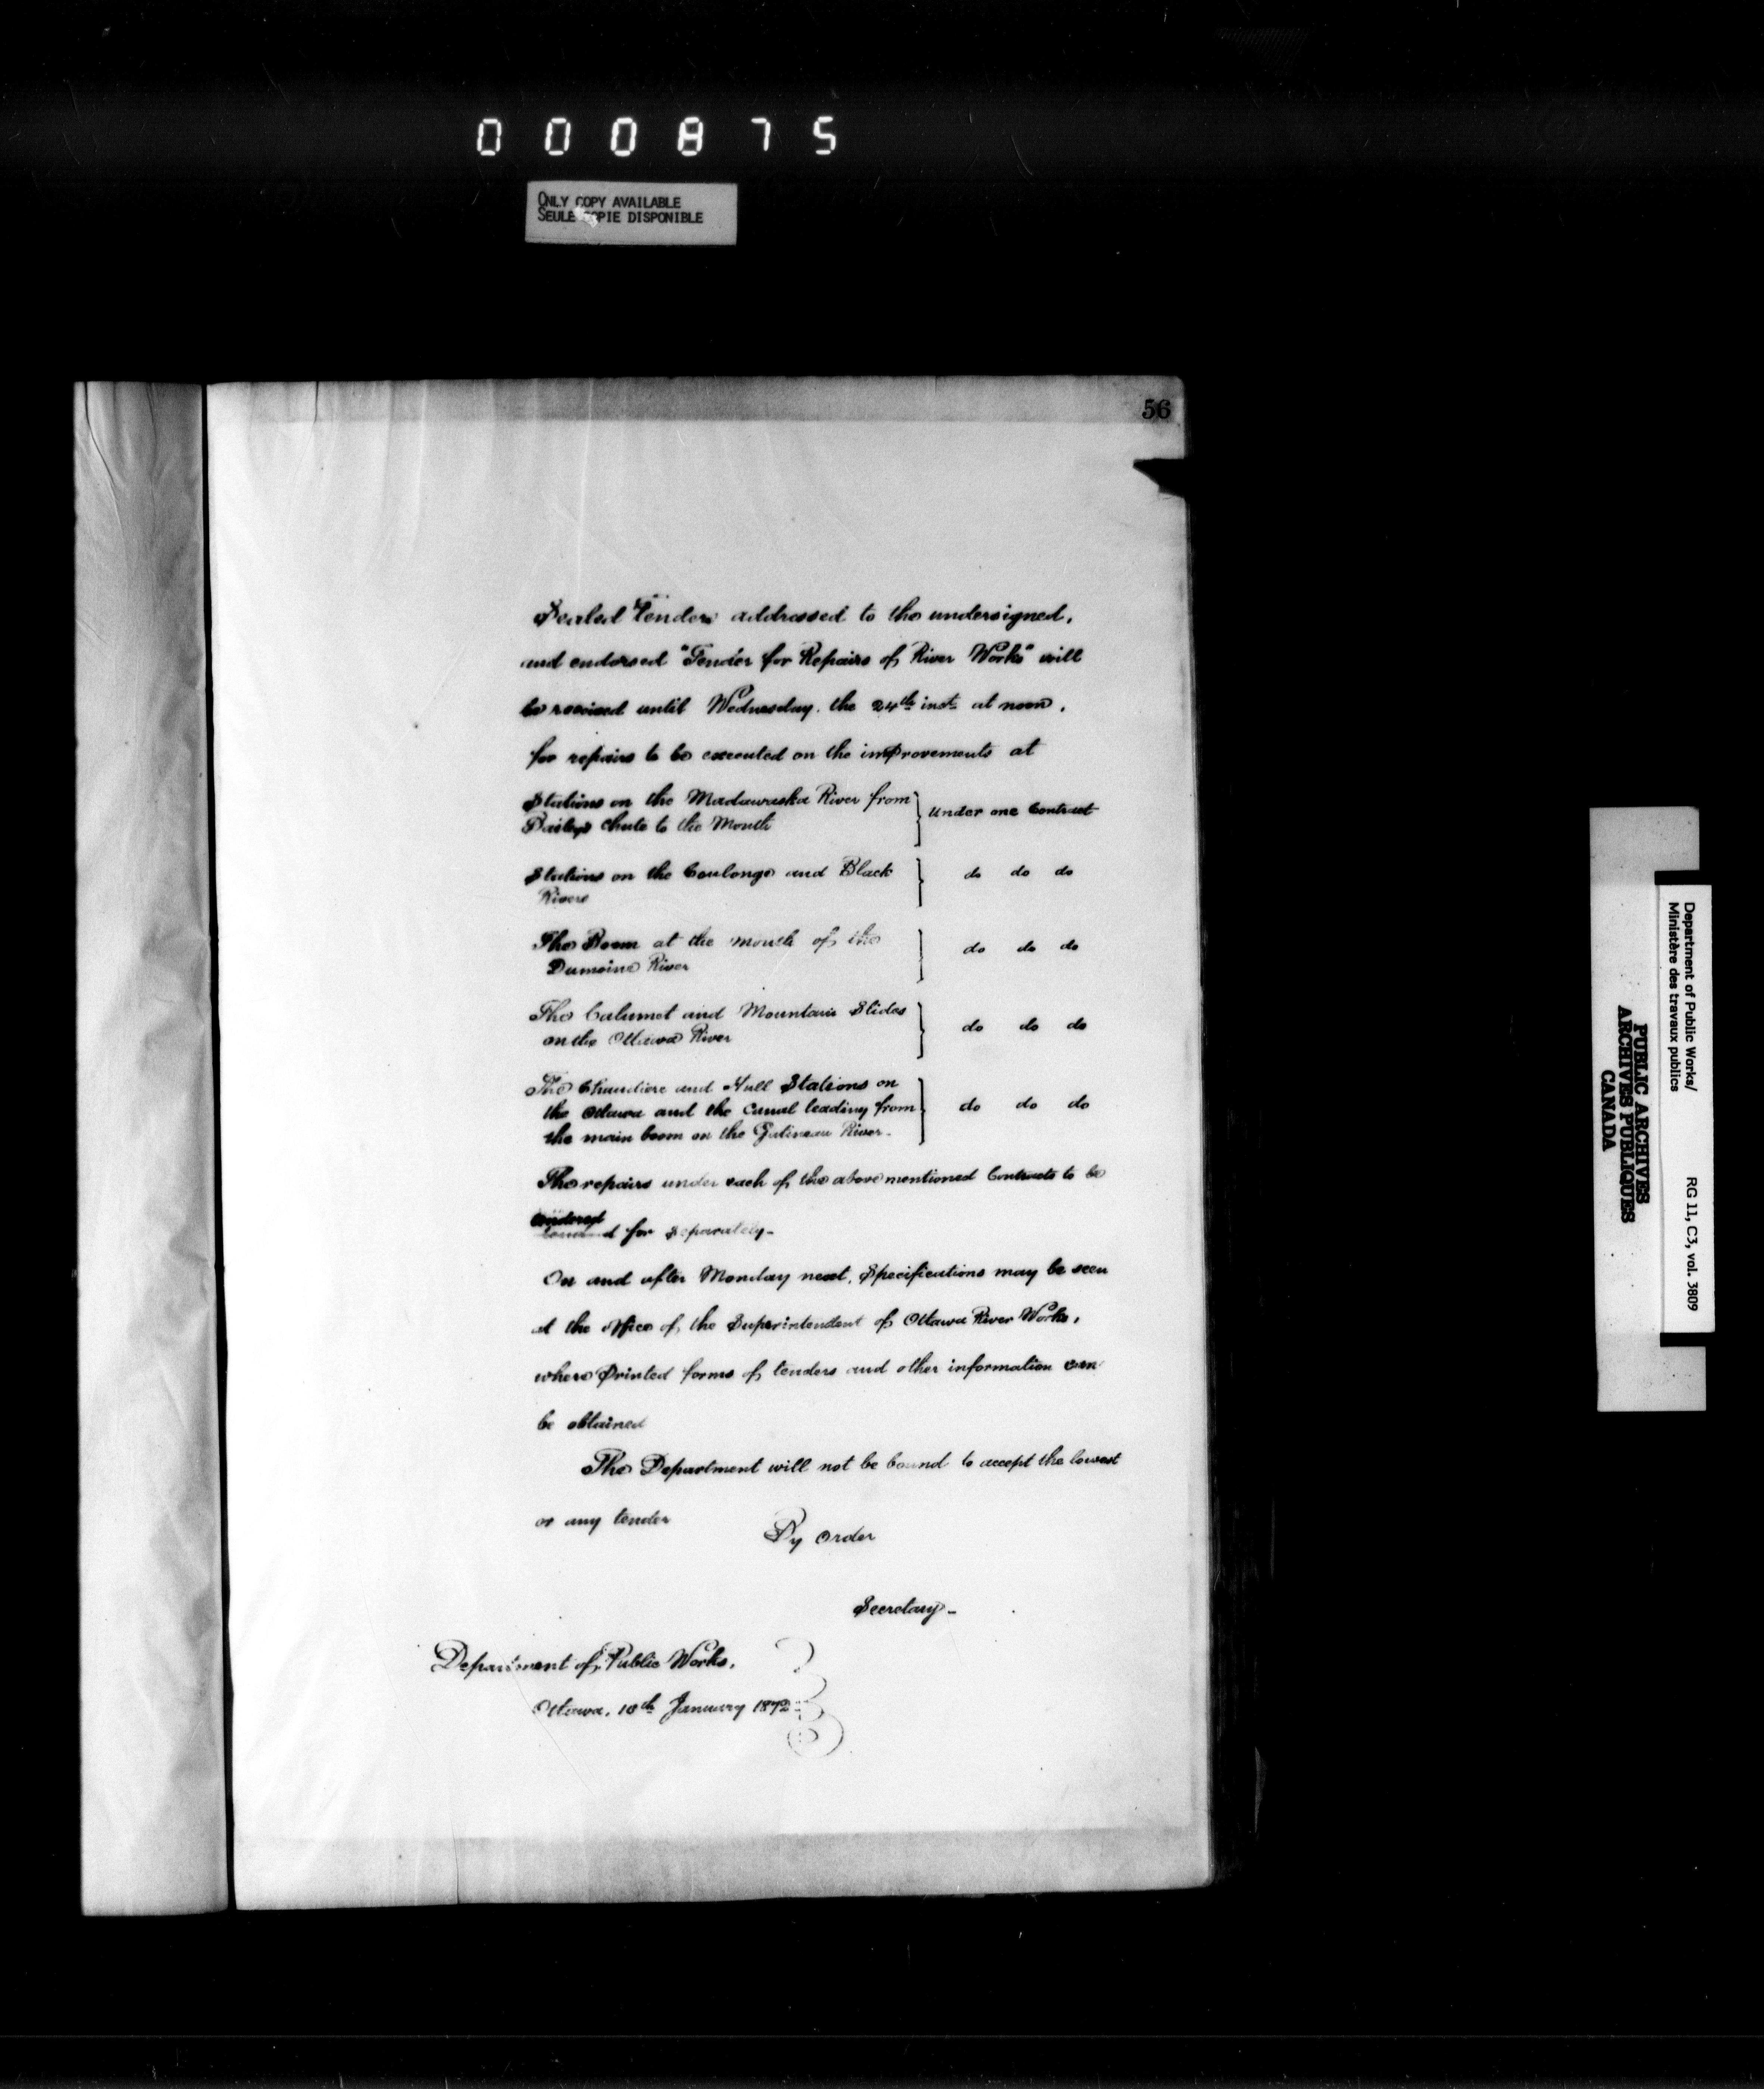 000875
ONLY COPY AVAILABLE
SEULE COPIE DISPONIBLE
56
Sealed Tenders addressed to the undersigned,
and endorsed "Tender for Repairs of River Works" will
be received until Wednesday. the 24th inst at noon,
for repairs to be executed on the improvements at
Stations on the Madawaska River from } Under one Contract
Baileys chute to the Mouth
Stations on the Coulonge and Black } do do do
Rivers
The Boom at the mouth of the } do do do
Dumoine River
The Calumet and Mountain Slides } do do do
on the Ottawa River
The Chaudiere and Hull Stations on
the Ottawa and the Canal leading from } do do do
the main boom on the Gatineau River.
The repairs under each of the above mentioned Contracts to be
tendered
for separately-
On and after Monday next, Specifications may be seen
at the office of the Superintendent of Ottawa River Works,
where Printed forms of tenders and other information can
be obtained
The Department will not be bound to accept the lowest
or any tender
By order
Secretary-
Department of Public Works,
Ottawa, 10th January 1872
Department of Public Works/
Ministère des travaux publics
RG 11, C3, vol. 3809
PUBLIC ARCHIVES
ARCHIVES PUBLIQUES
CANADA